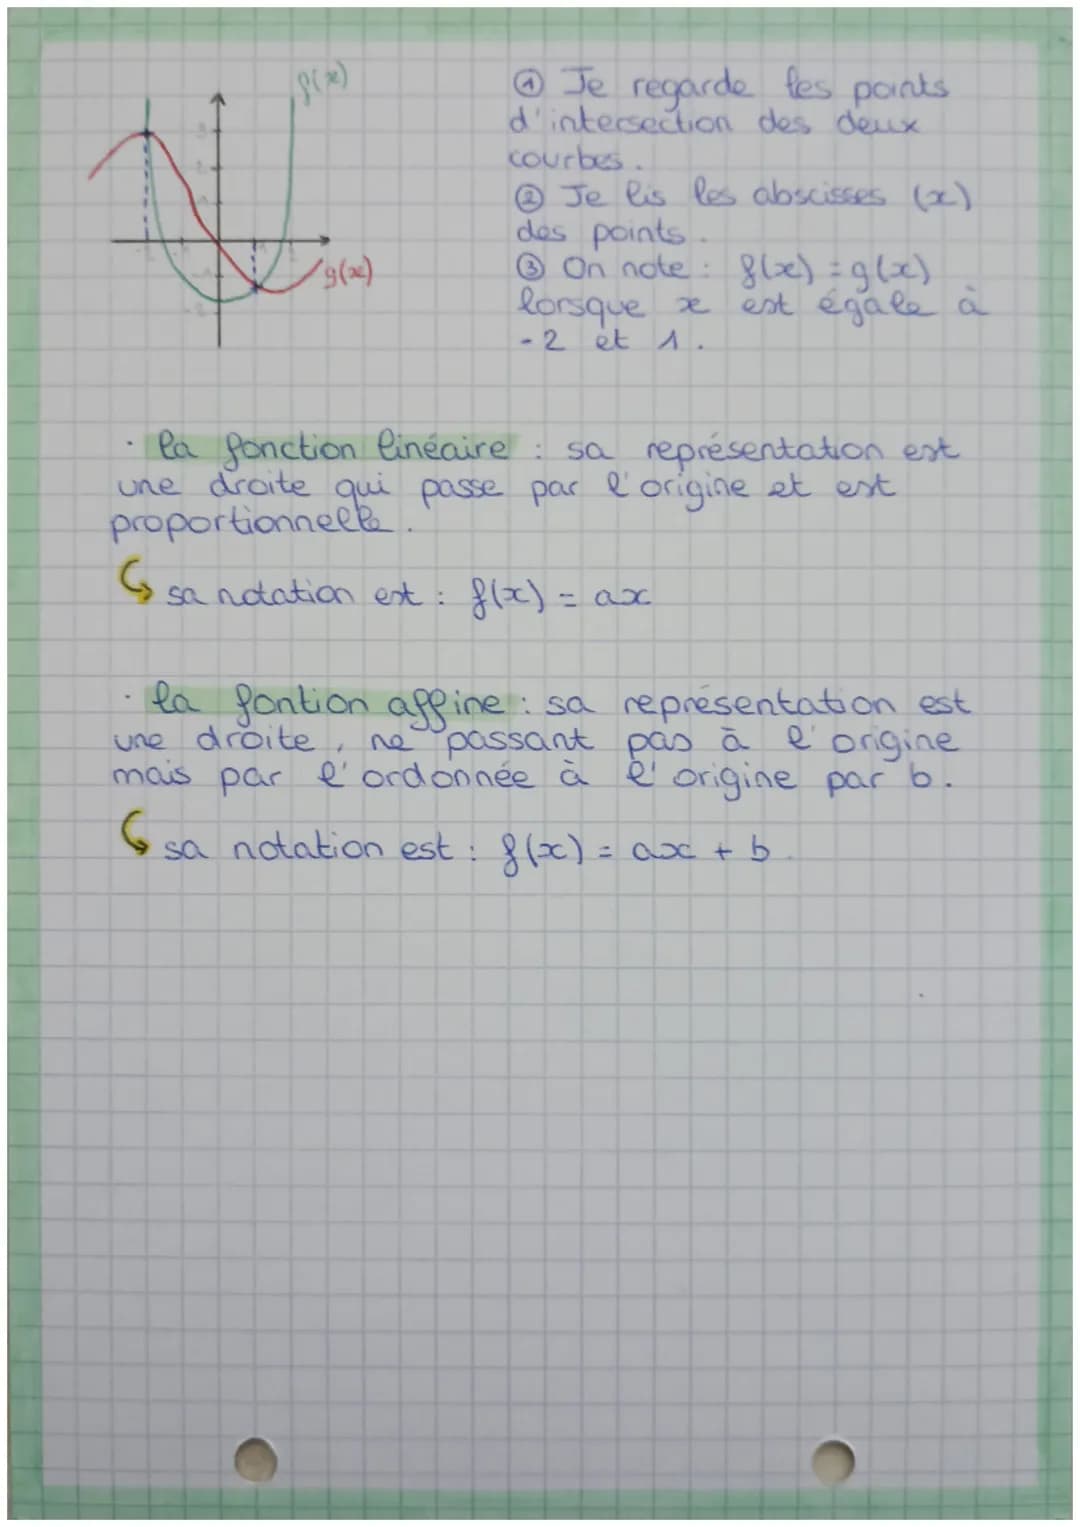 f(x)
3
2
1
g(x)
① Je regarde les points
d'intersection des deux
courbes.
② Je lis les abscisses (x)
des points.
③ On note : f(x) = g(x)
lorsque x est égale à
-2 et 1.
· la fonction linéaire : sa représentation est
une droite qui passe par l'origine et est
proportionnelle.
sa notation est : f(x) = ax
· la fontion affine : sa représentation est
une droite, ne passant pas à l'origine
mais par l'ordonnée à l'origine par b.
sa notation est : f(x) = ax + b.